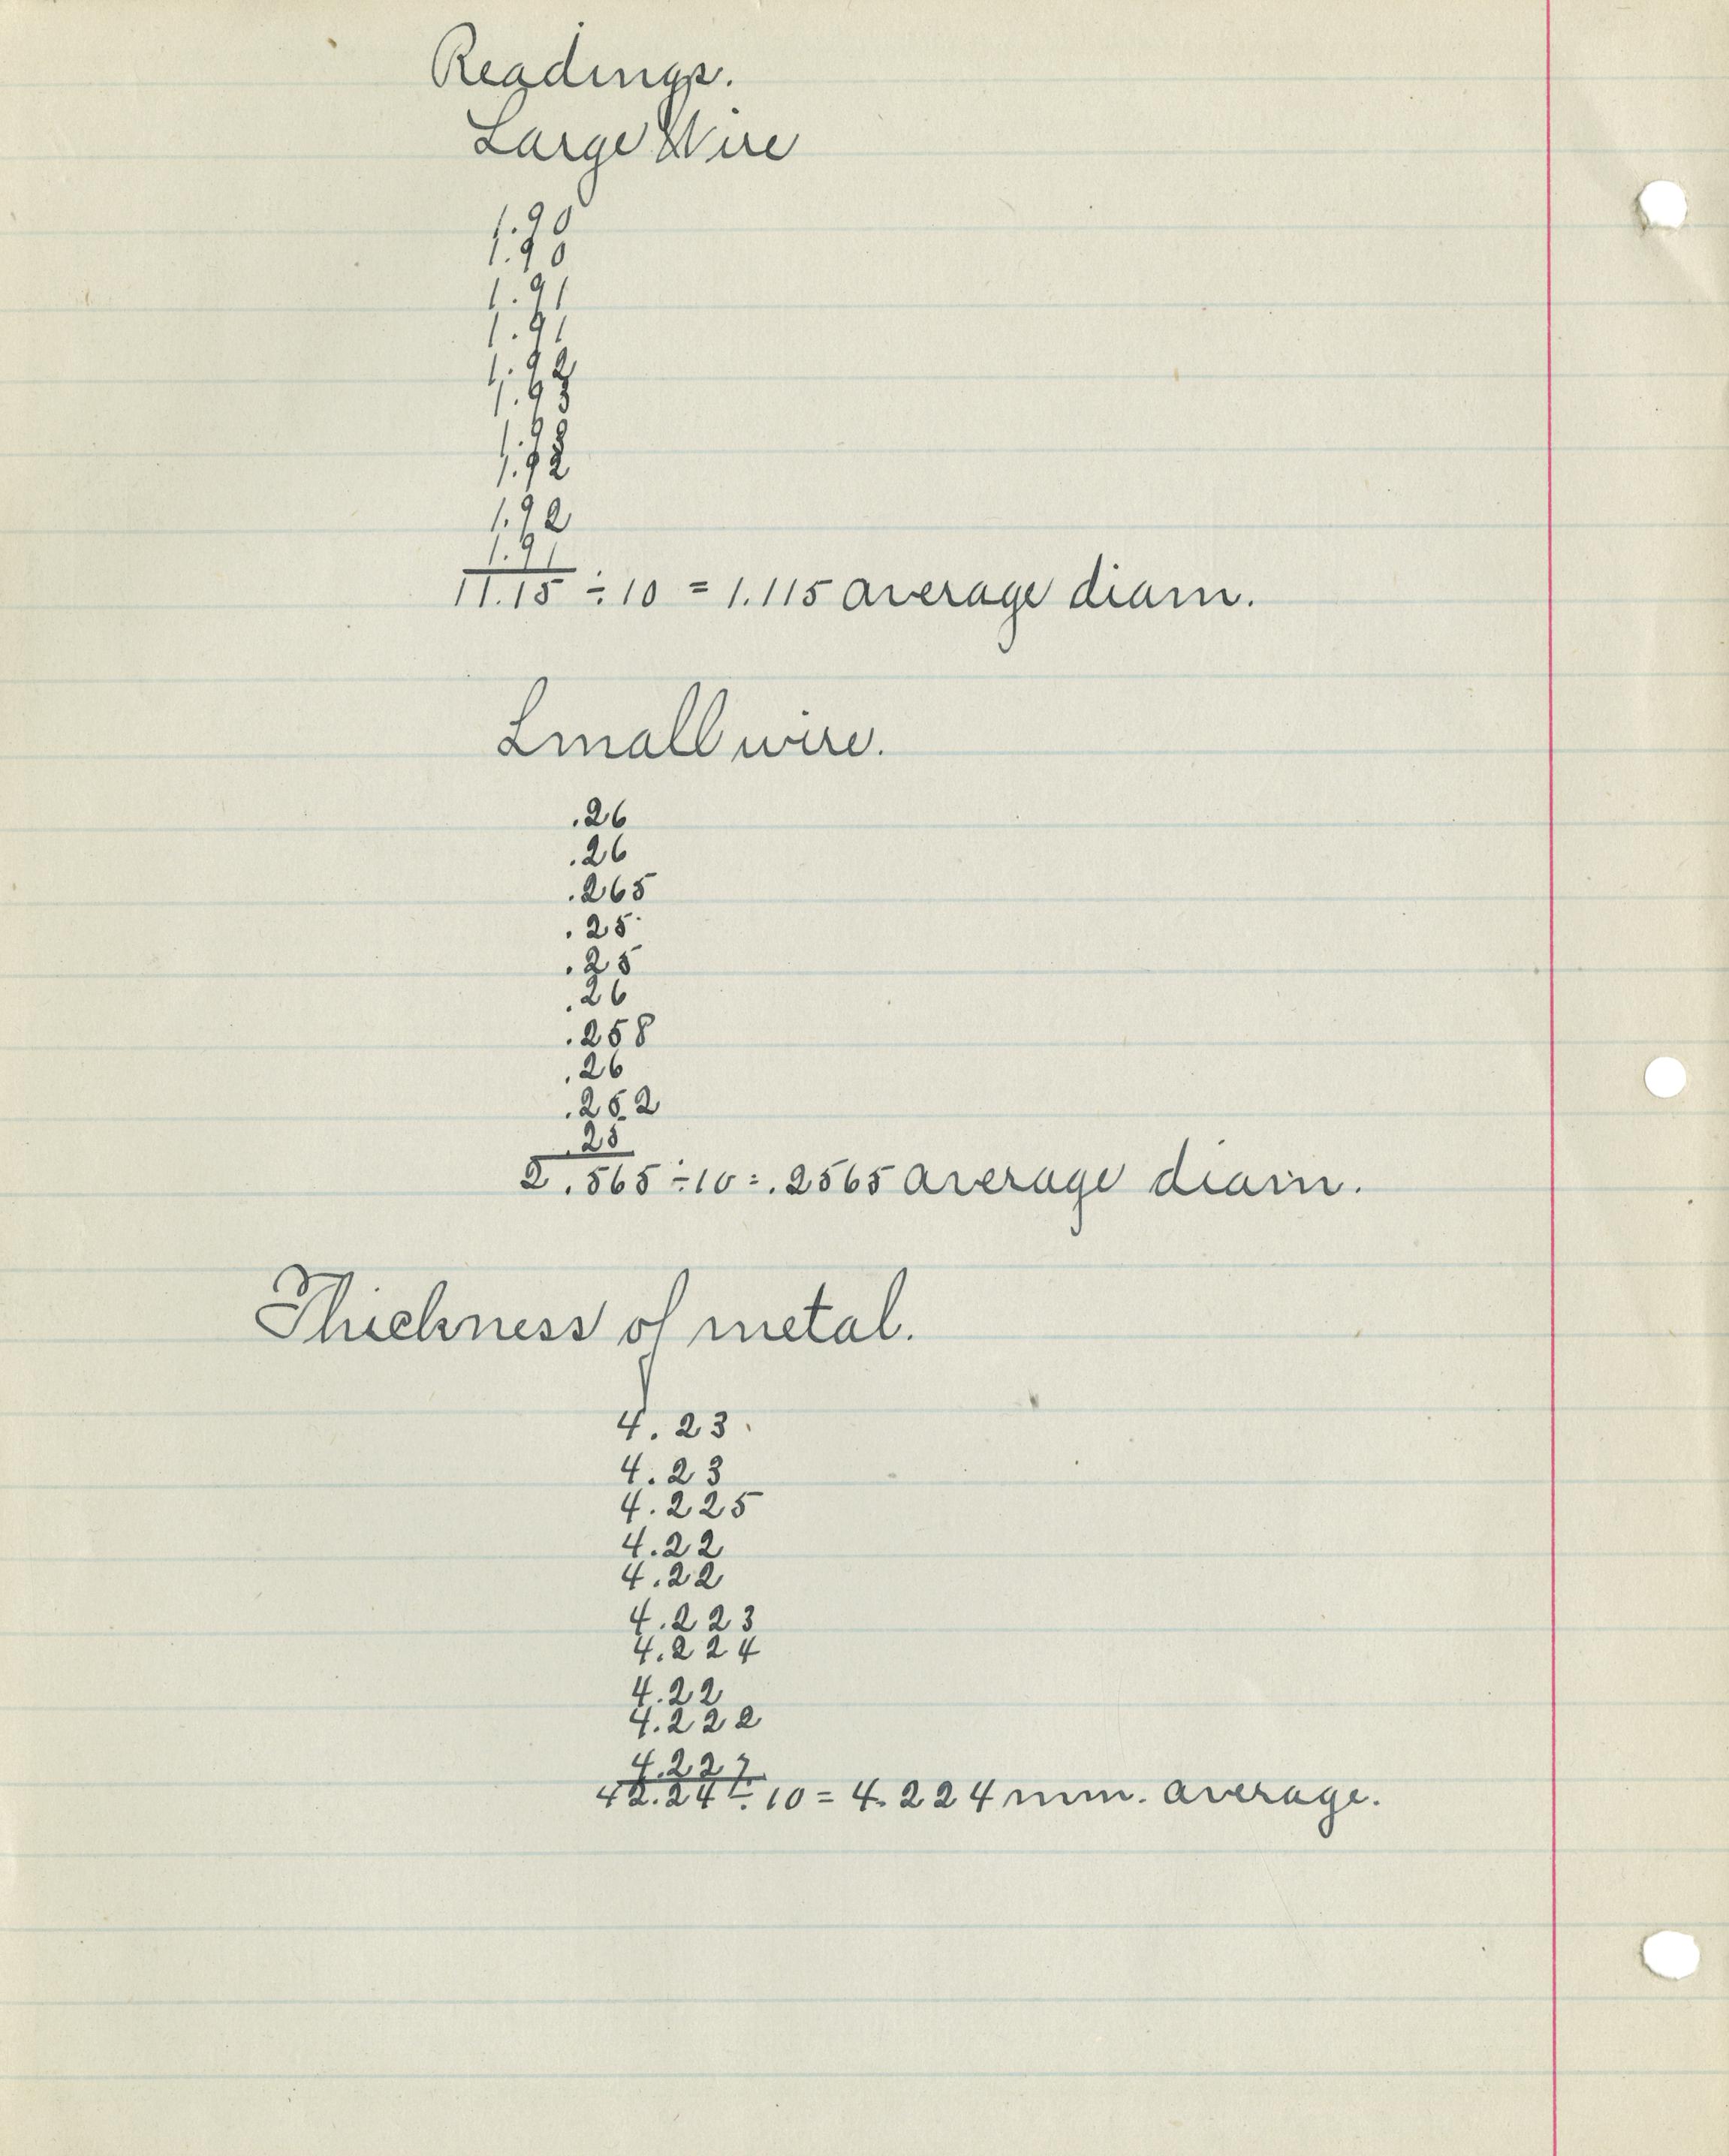 Readings.
Large Wire
1.90
1.90
1.91
1.91
1.92
1.93
1.98
1.92
1.92
1.91
11.15 ÷ 10 = 1.115 average diam.
Small wire.
.26
.26
.265
.25
.25
.26
.258
.26
.252
.25
2.565 ÷ 10 = .2565 average diam.
Thickness of metal.
4.23
4.23
4.225
4.22
4.22
4.223
4.224
4.22
4.222
4.227
42.24 ÷ 10 = 4.224 mm. average.